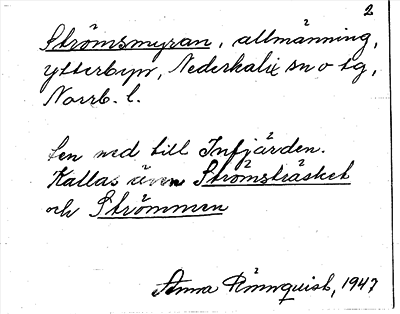 2
Strömsmyran, allmänning,
Ytterbyn, Nederkalix sn o tg,
Norrb. l.
ned till Infjärden.
Kallas även Strömsträsket
och Strömmen
Anna Rönnquist, 1947